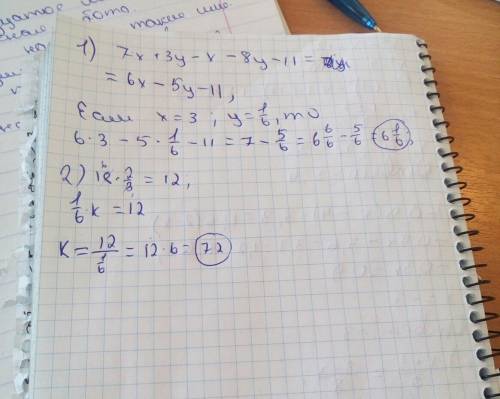 1) 7x + 3y - x - 8y - 11 =
= 6x - 5y - 11,
Если x = 3; y = 1/6, то
6·3 - 5·1/6 - 11 = 7 - 5/6 = 6 6/6 - 5/6 = 6 1/6,
2) · 2/3 = 12,
1/6·k = 12
K = 12/(1/6) = 12·6 = 72